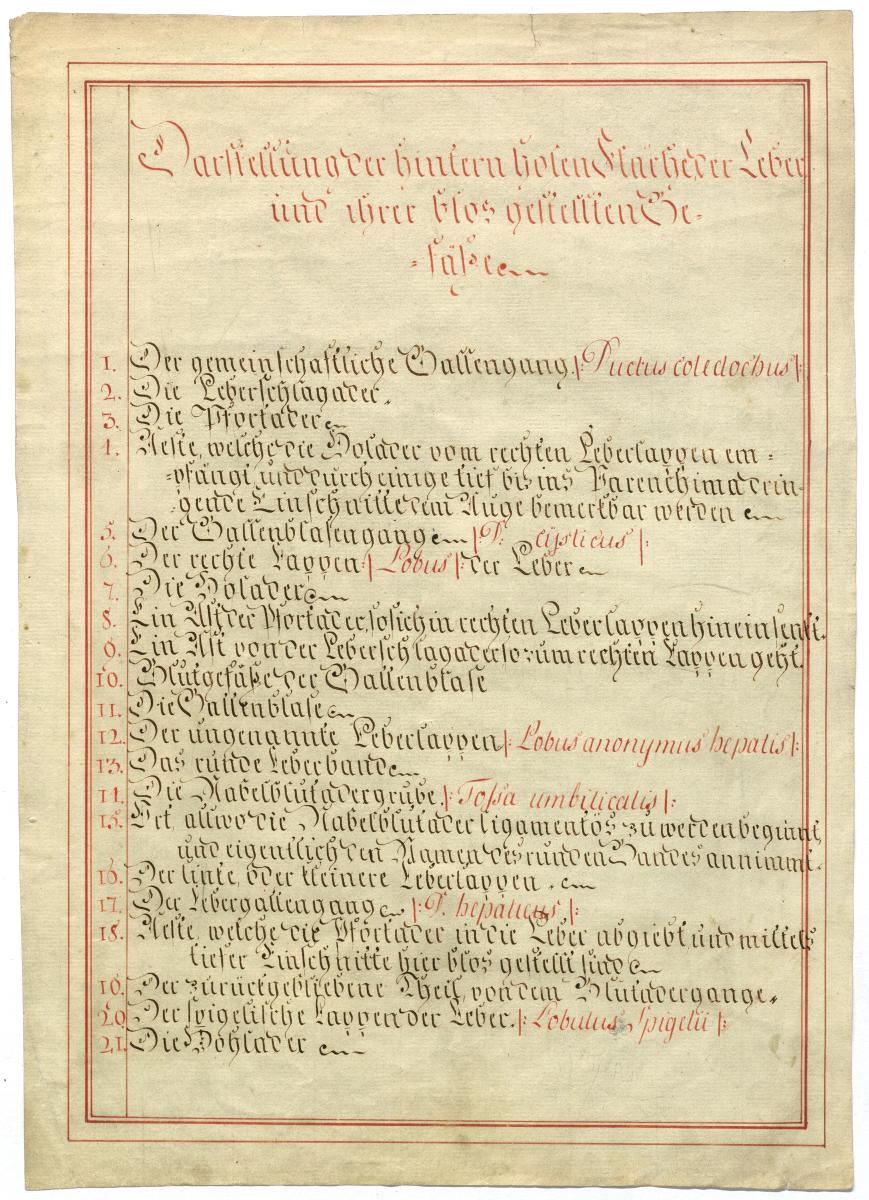 Darstellung der hintern holen Fläche der Leber
und ihrer blos gestellten Ge-
=fäße
1. Der gemeinschaftliche Gallengang |: Ductus coledochus :|
2. Die Leberschlagader.
3. Die Pfortader
4. Aeste, welche die Holader vom rechten Leberlappen em=
=pfängt, und durch einige tief bis ins Parenchima drin-
gende Einschnitte dem Auge bemerkbar werden
5. Der Gallenblasengang |: D. cysticus :|
6. Der rechte Lappen |: Lobus :| der Leber
7. Die Holader
8. Ein Ast der Pfortader, so sich in rechten Leberlappen hinein senkt.
9. Ein Ast von der Leberschlagader so zum rechten Lappen geht.
10. Blutgefäße der Gallenblase
11. Die Gallenblase
12. Der ungenannte Leberlappen |: Lobus anonymus hepatis :|
13. Das runde Leberband
14. Die Nabelblutadergrube |: Fossa umbilicalis :|
15. Ort, allwo die Nabelblutader ligamentös zu werden beginnt,
und eigentlich den Namen des runden Bandes annimmt.
16. Der linke, oder kleinere Leberlappen.
17. Der Lebergallengang |: D. hepaticus :|
18. Aeste, welche die Pfortader in die Leber abgiebt, und mittels
tiefer Einschnitte hier blos gestellt sind
19. Der zurückgebliebene Theil von dem Blutadergange.
20 Der spigelische Lappen der Leber. |: Lobulus Spigelii :|
21. Die Hohlader